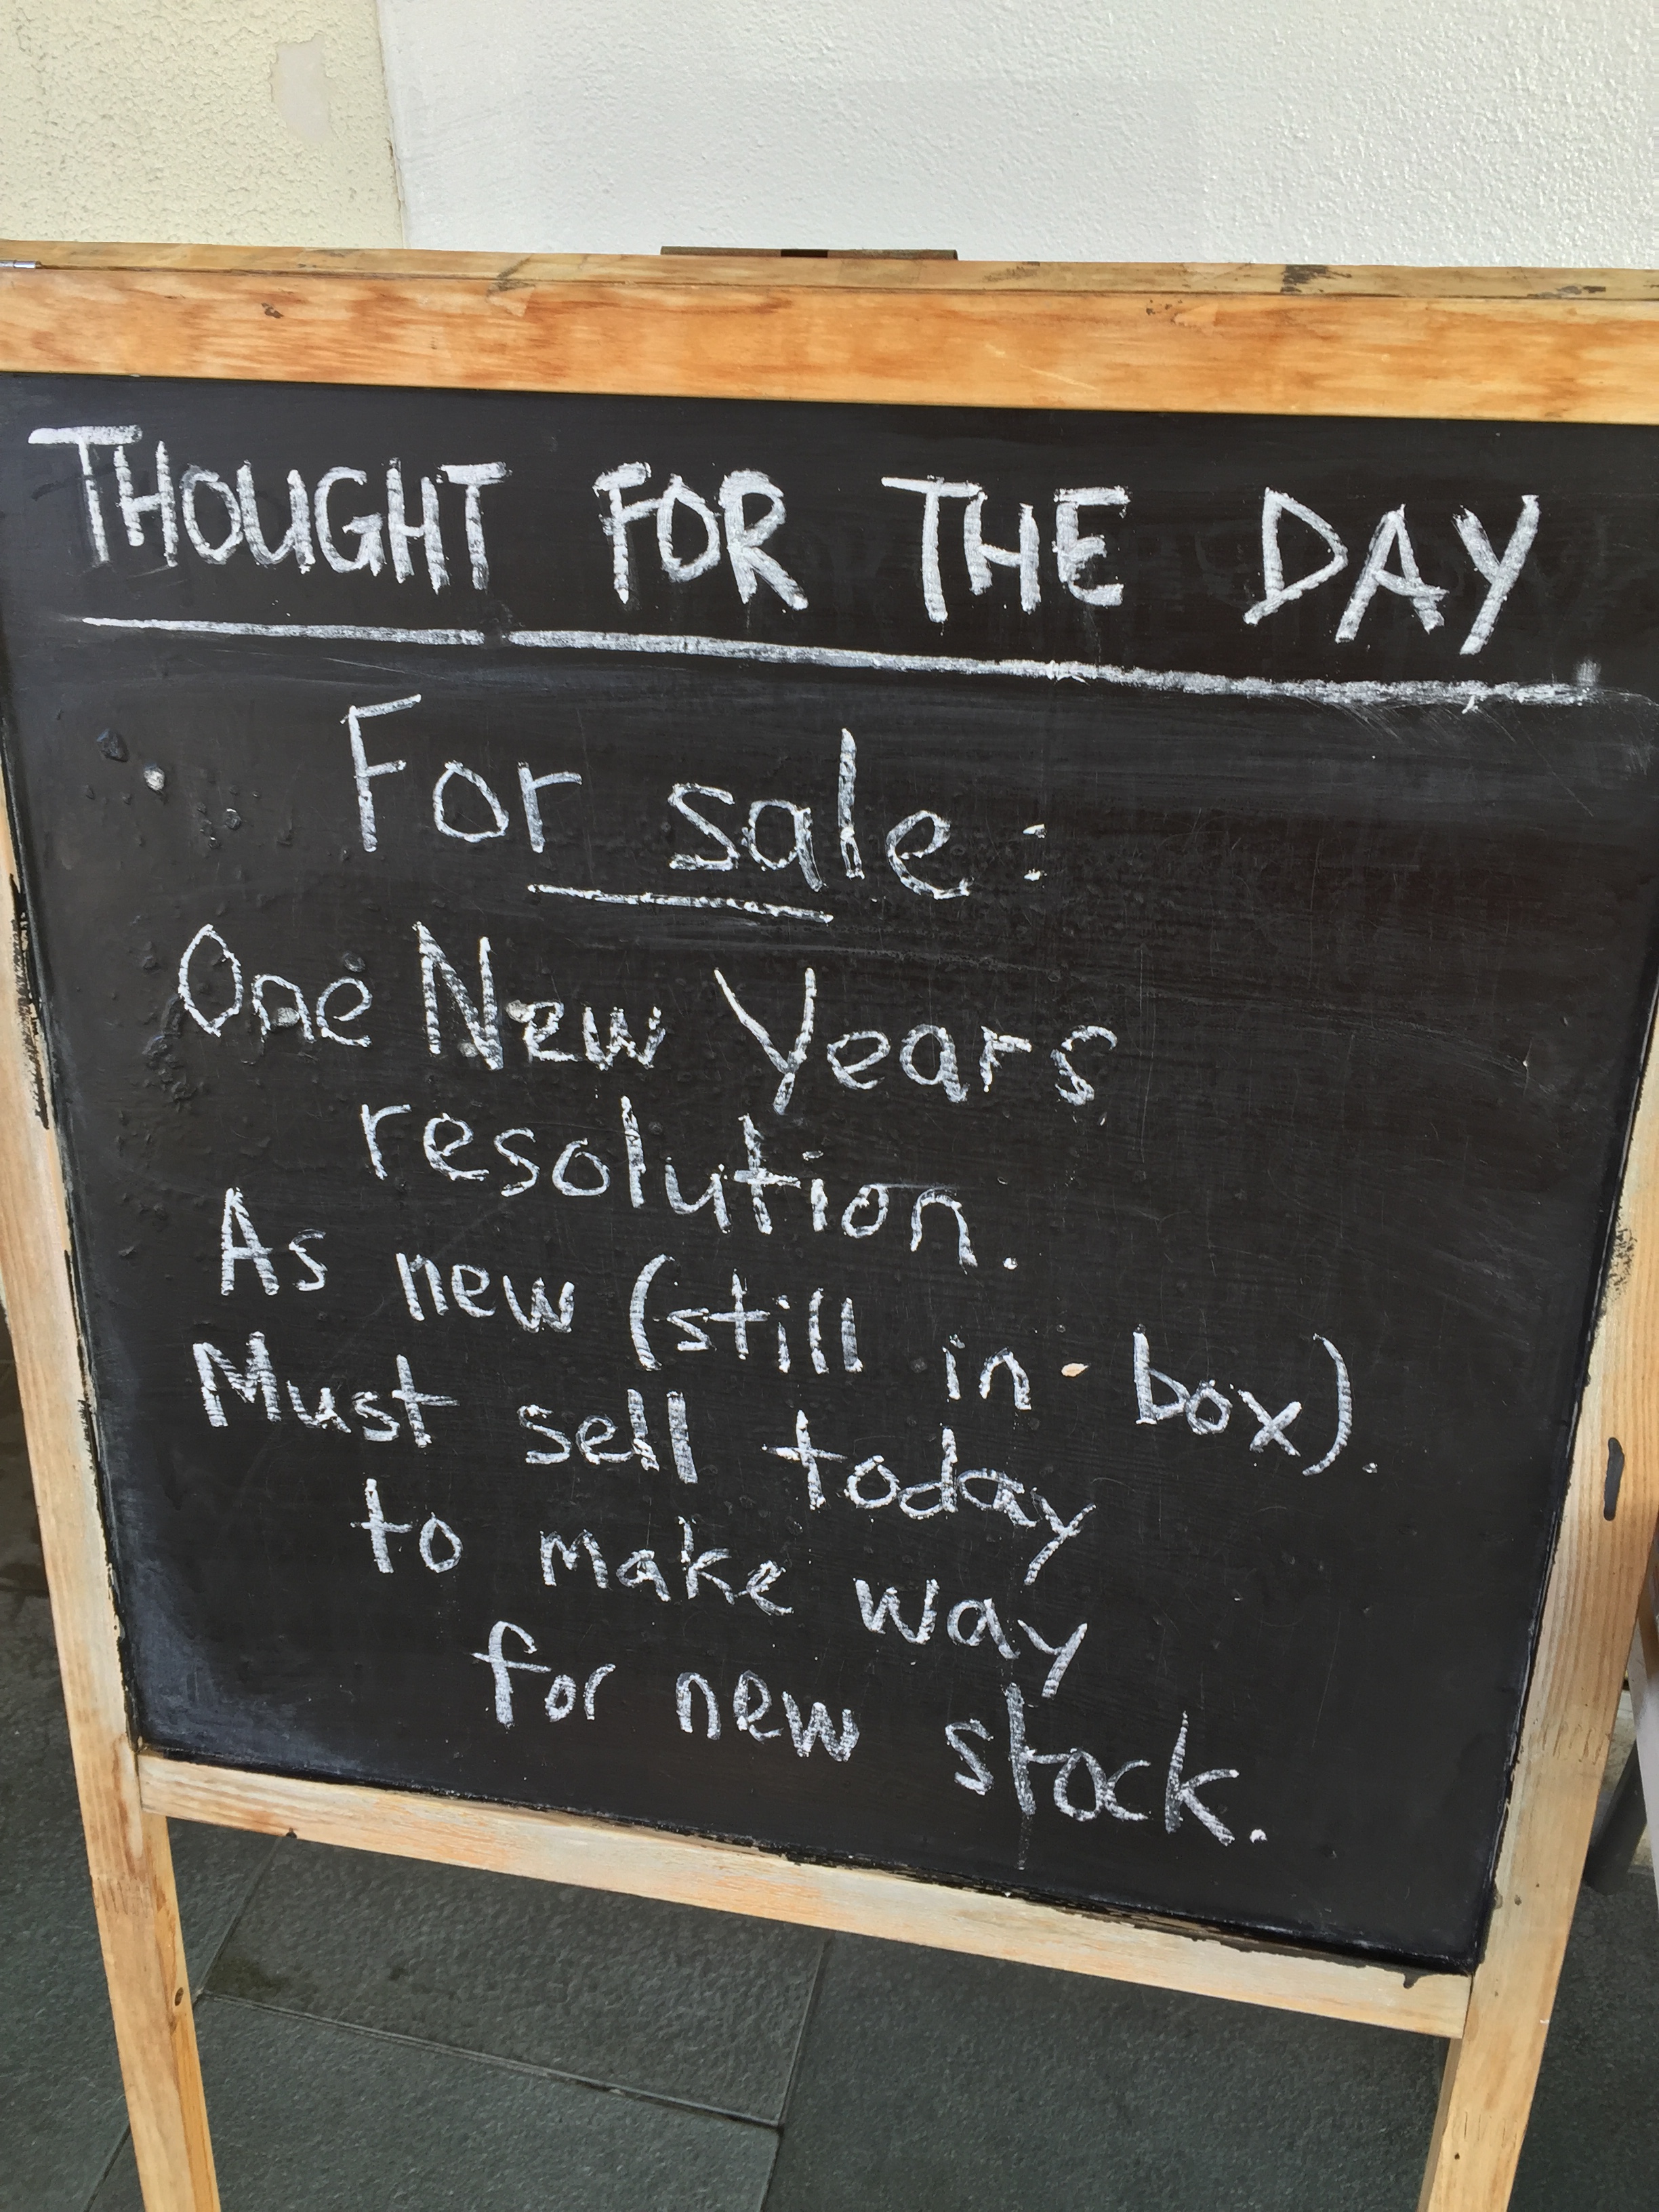 THOUGHT FOR THE DAY
For sale:
One New Years
resolution.
As new (still in box).
Must sell today
to make way
for new stock.